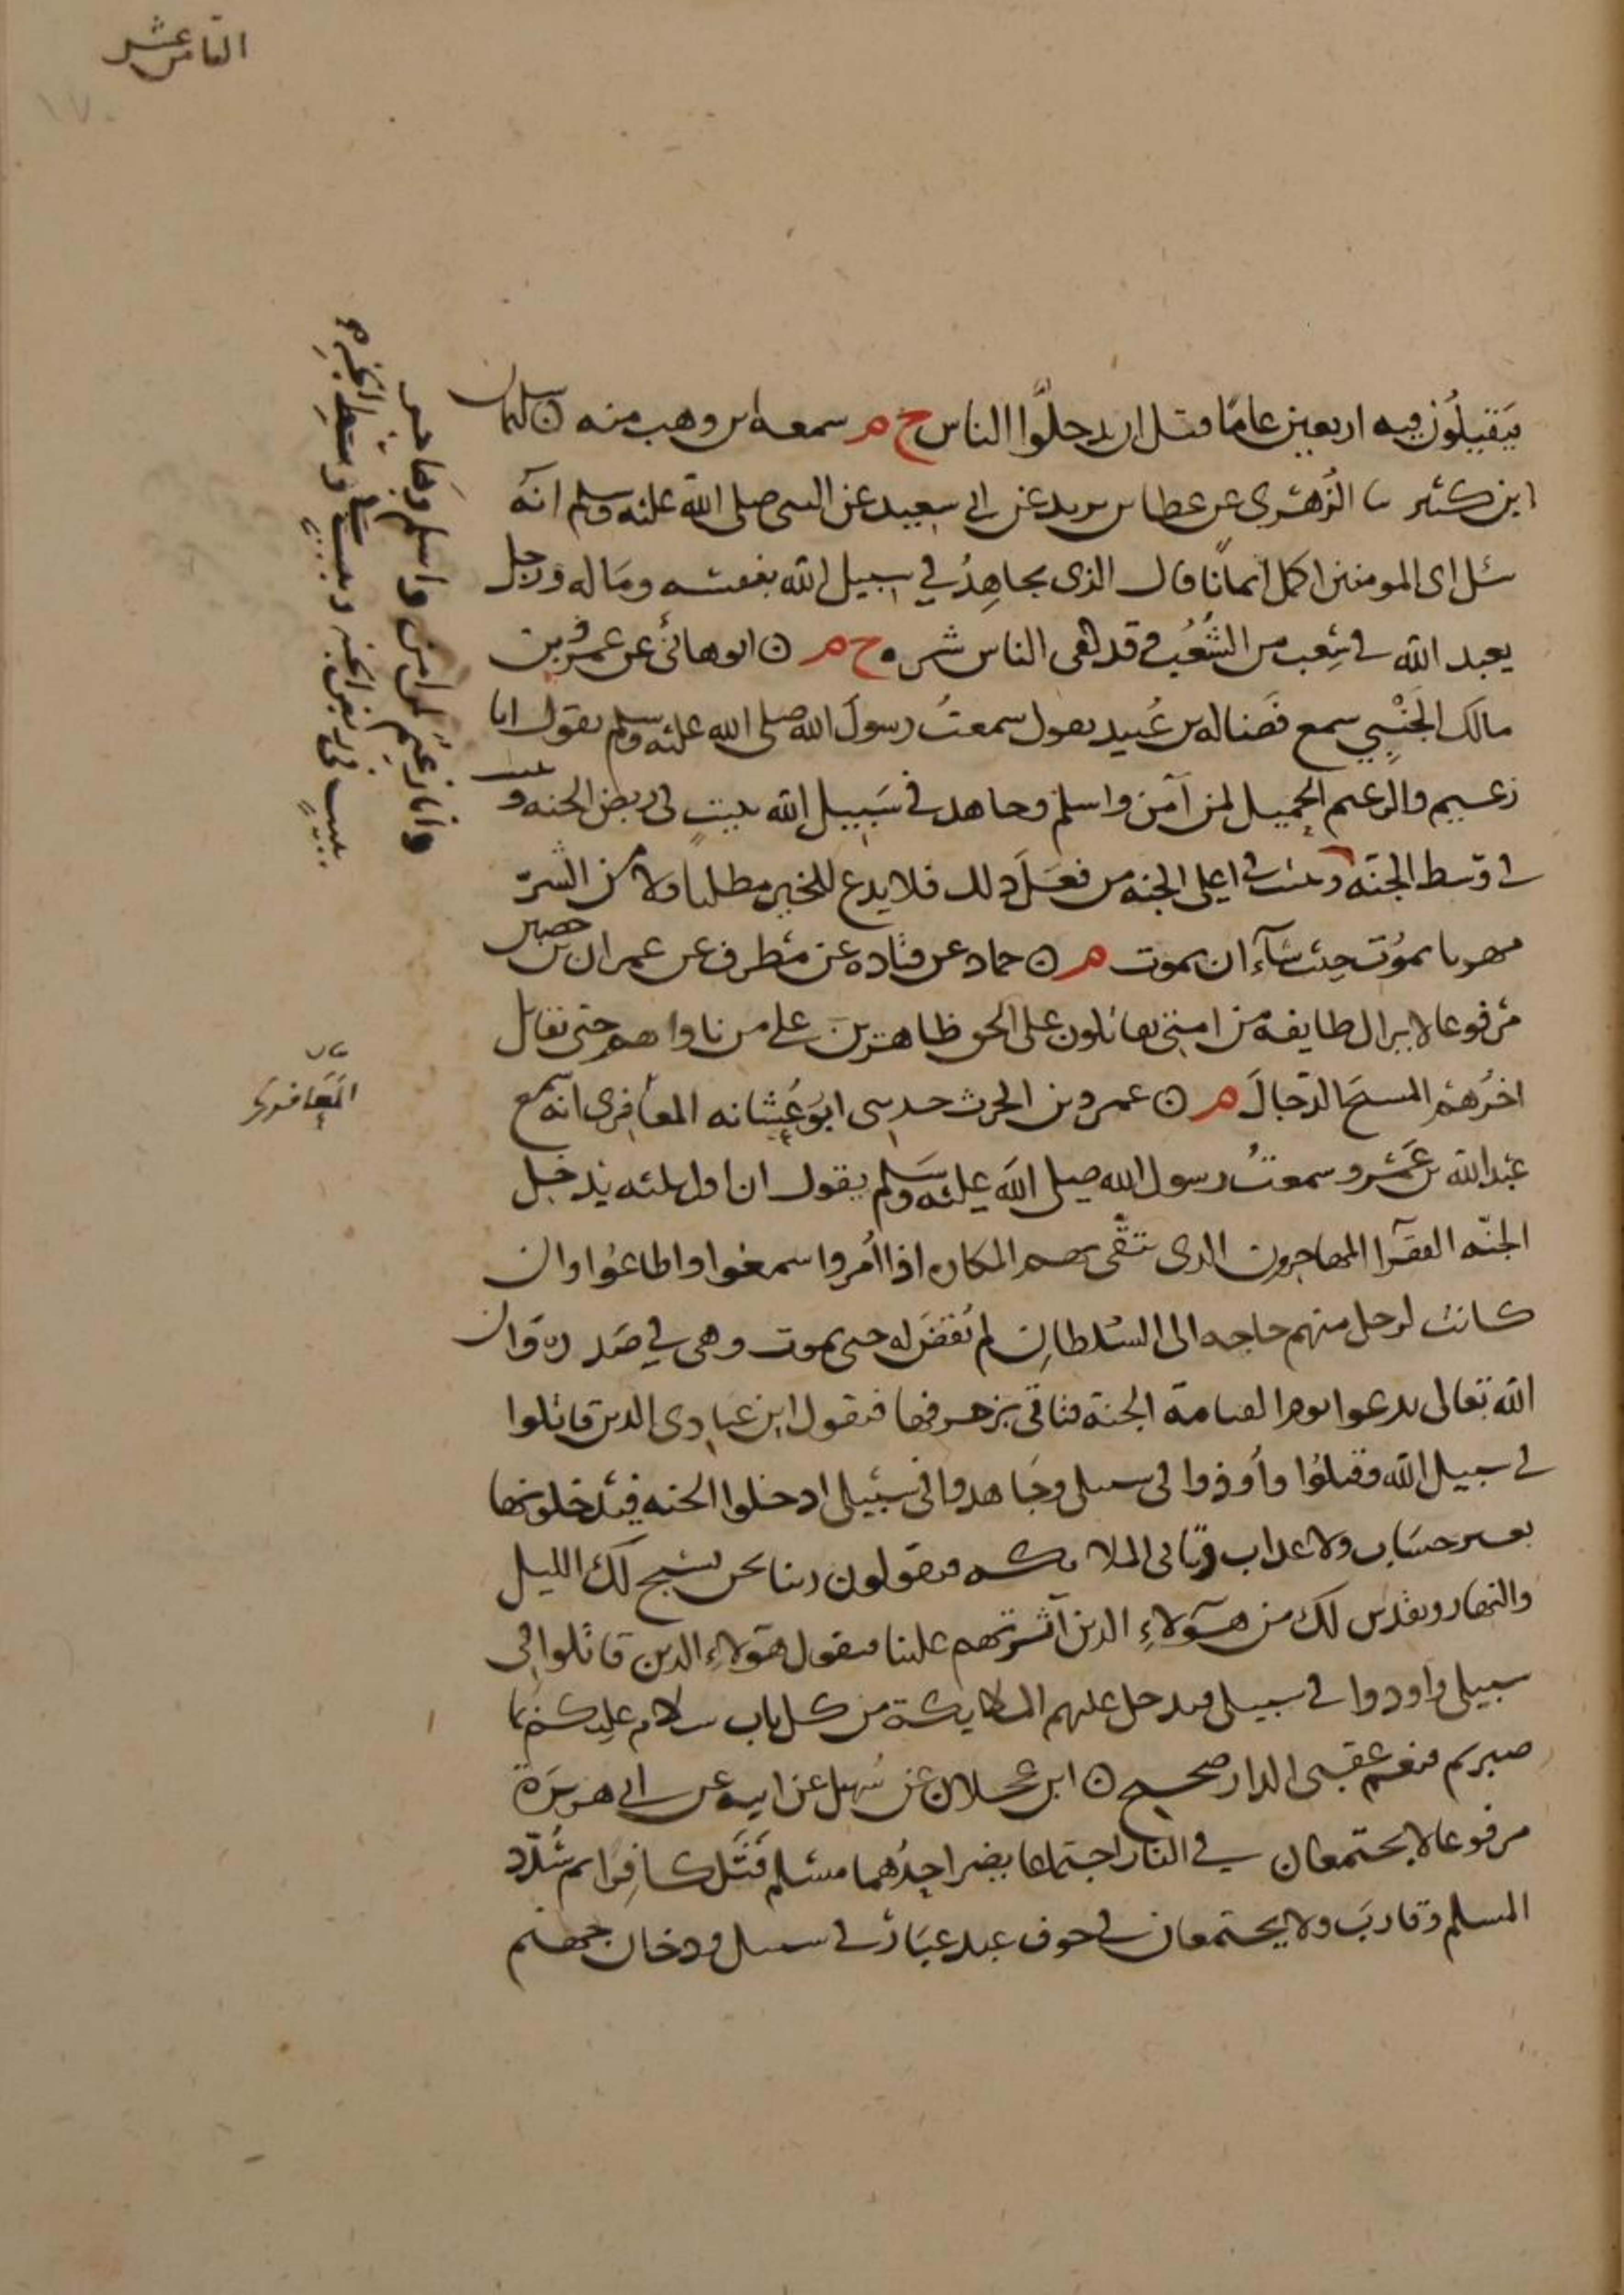 الثامن عشر
١٧٠
يَتقيلُون فيه اربعين عامًا قبل ان يدخلوا الناس خ م سمعه ابن وهب منه ۞ سليمان
ابن كثير ثنا الزُهْري عن عطا بن يزيد عن ابي سعيد عن النبي صلى الله عليه وسلم انه
سئل اى المومنين اكمل ايمانًا قال الذى يجاهِدُ في سبيل الله بنفسه وماله ورجل
يعبد الله في شِعب من الشُعُب قد كفى الناس شره خ م ۞ ابو هانئ عن عمرو بن
مالك الجَنْبِي سمع فَضاله بن عُبيد يقول سمعتُ رسولَ الله صلى الله عليه وسلم يقول انا
زعيم والزعيم الحميل لمن آمن واسلم وجاهد في سَبيل الله ببيتٍ في ربض الجنه و
في وسط الجنّه وببيت في اعلى الجنه من فعَل ذلك فلا يدع للخير مطلبا ولا من الشرّ
مهربا يموُت حيث شآء ان يموت م ۞ حماد عن قتاده عن مُطرف عن عمران بن حصين
مرفوعا لا يزال طايفة من امتي يقاتلون على الحق ظاهرين على من ناواهم حتى يقاتل
اخرُهُم المسيحَ الدّجالَ م ۞ عمرو بن الحرث حدثنى ابوُ عُشانه المعَافِرى انه سمع
عبد الله بن عَمْرو سمعتُ رسول الله صلى الله عليه وسَلم يقول ان اول ثلثه يدخل
الجنّه الفقرآ المهاجرون الذى تتقّى بهم المكاره اذا اُمروا سمعوا واطاعُوا وان
كانت لرجل منهم حاجه الى السُلطانِ لم تُقضَ له حتى يموت وهى في صَدره وان
الله تعالى يدعوا يوم القيامة الجنة فتاتى بزخرفها فيقول اين عبادى الذين قاتلوا
في سبيل الله وقتلوُا واُوذوا في سبيلى وجَاهدوا في سَبيلى ادخلوا الجنه فيَدخلونها
بغير حسَاب ولا عذاب وتاتى الملايكه فيقولون ربنا نحن نسَبح لكَ الليل
والنهار ونقدس لك من هَؤلاءِ الذين آثَرتهم علينا فيقول هَؤلاءِ الذين قاتلوا في
سبيلى واوذوا في سبيلى فيدخل عليهم الملايكة من كل باب سلام عليكم بما
صبرتم فنعم عقبى الدار صحيح ۞ ابن عجلان عن سُهيل عن ابيه عن ابى هريرَة
مرفوعا لا يجتمعان في النار اجتماعا يضر احدُهما مسْلم قَتَل كافِرًا ثم سُدّد
المسلم وقاربَ ولا يجتمعان في جوف عبد غبَار في سبيل ودخان جهنم
وانا زعيم لمن امن واسلم وجاهد
ببيت في ربض الجنه وببيت
المَعافرى